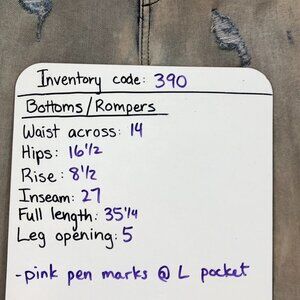 Inventory code: 390
Bottoms/Rompers
Waist across: 14
Hips: 16 1/2
Rise: 8 1/2
Inseam: 27
Full length: 35 1/4
Leg opening: 5
-pink pen marks @ L pocket